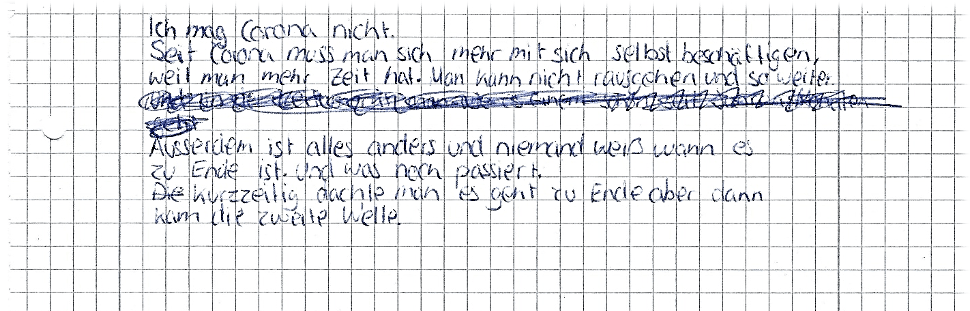 Ich mag Corona nicht.
Seit Corona muss man sich mehr mit sich selbst beschäftigen,
weil man mehr Zeit hat. Man kann nicht rausgehen und so weiter
Ausserdem ist alles anders und niemand weiß wann es
zu Ende ist. Und was noch passiert.
Die kurzzeitig dachte man es geht zu Ende aber dann
kam die zweite Welle.